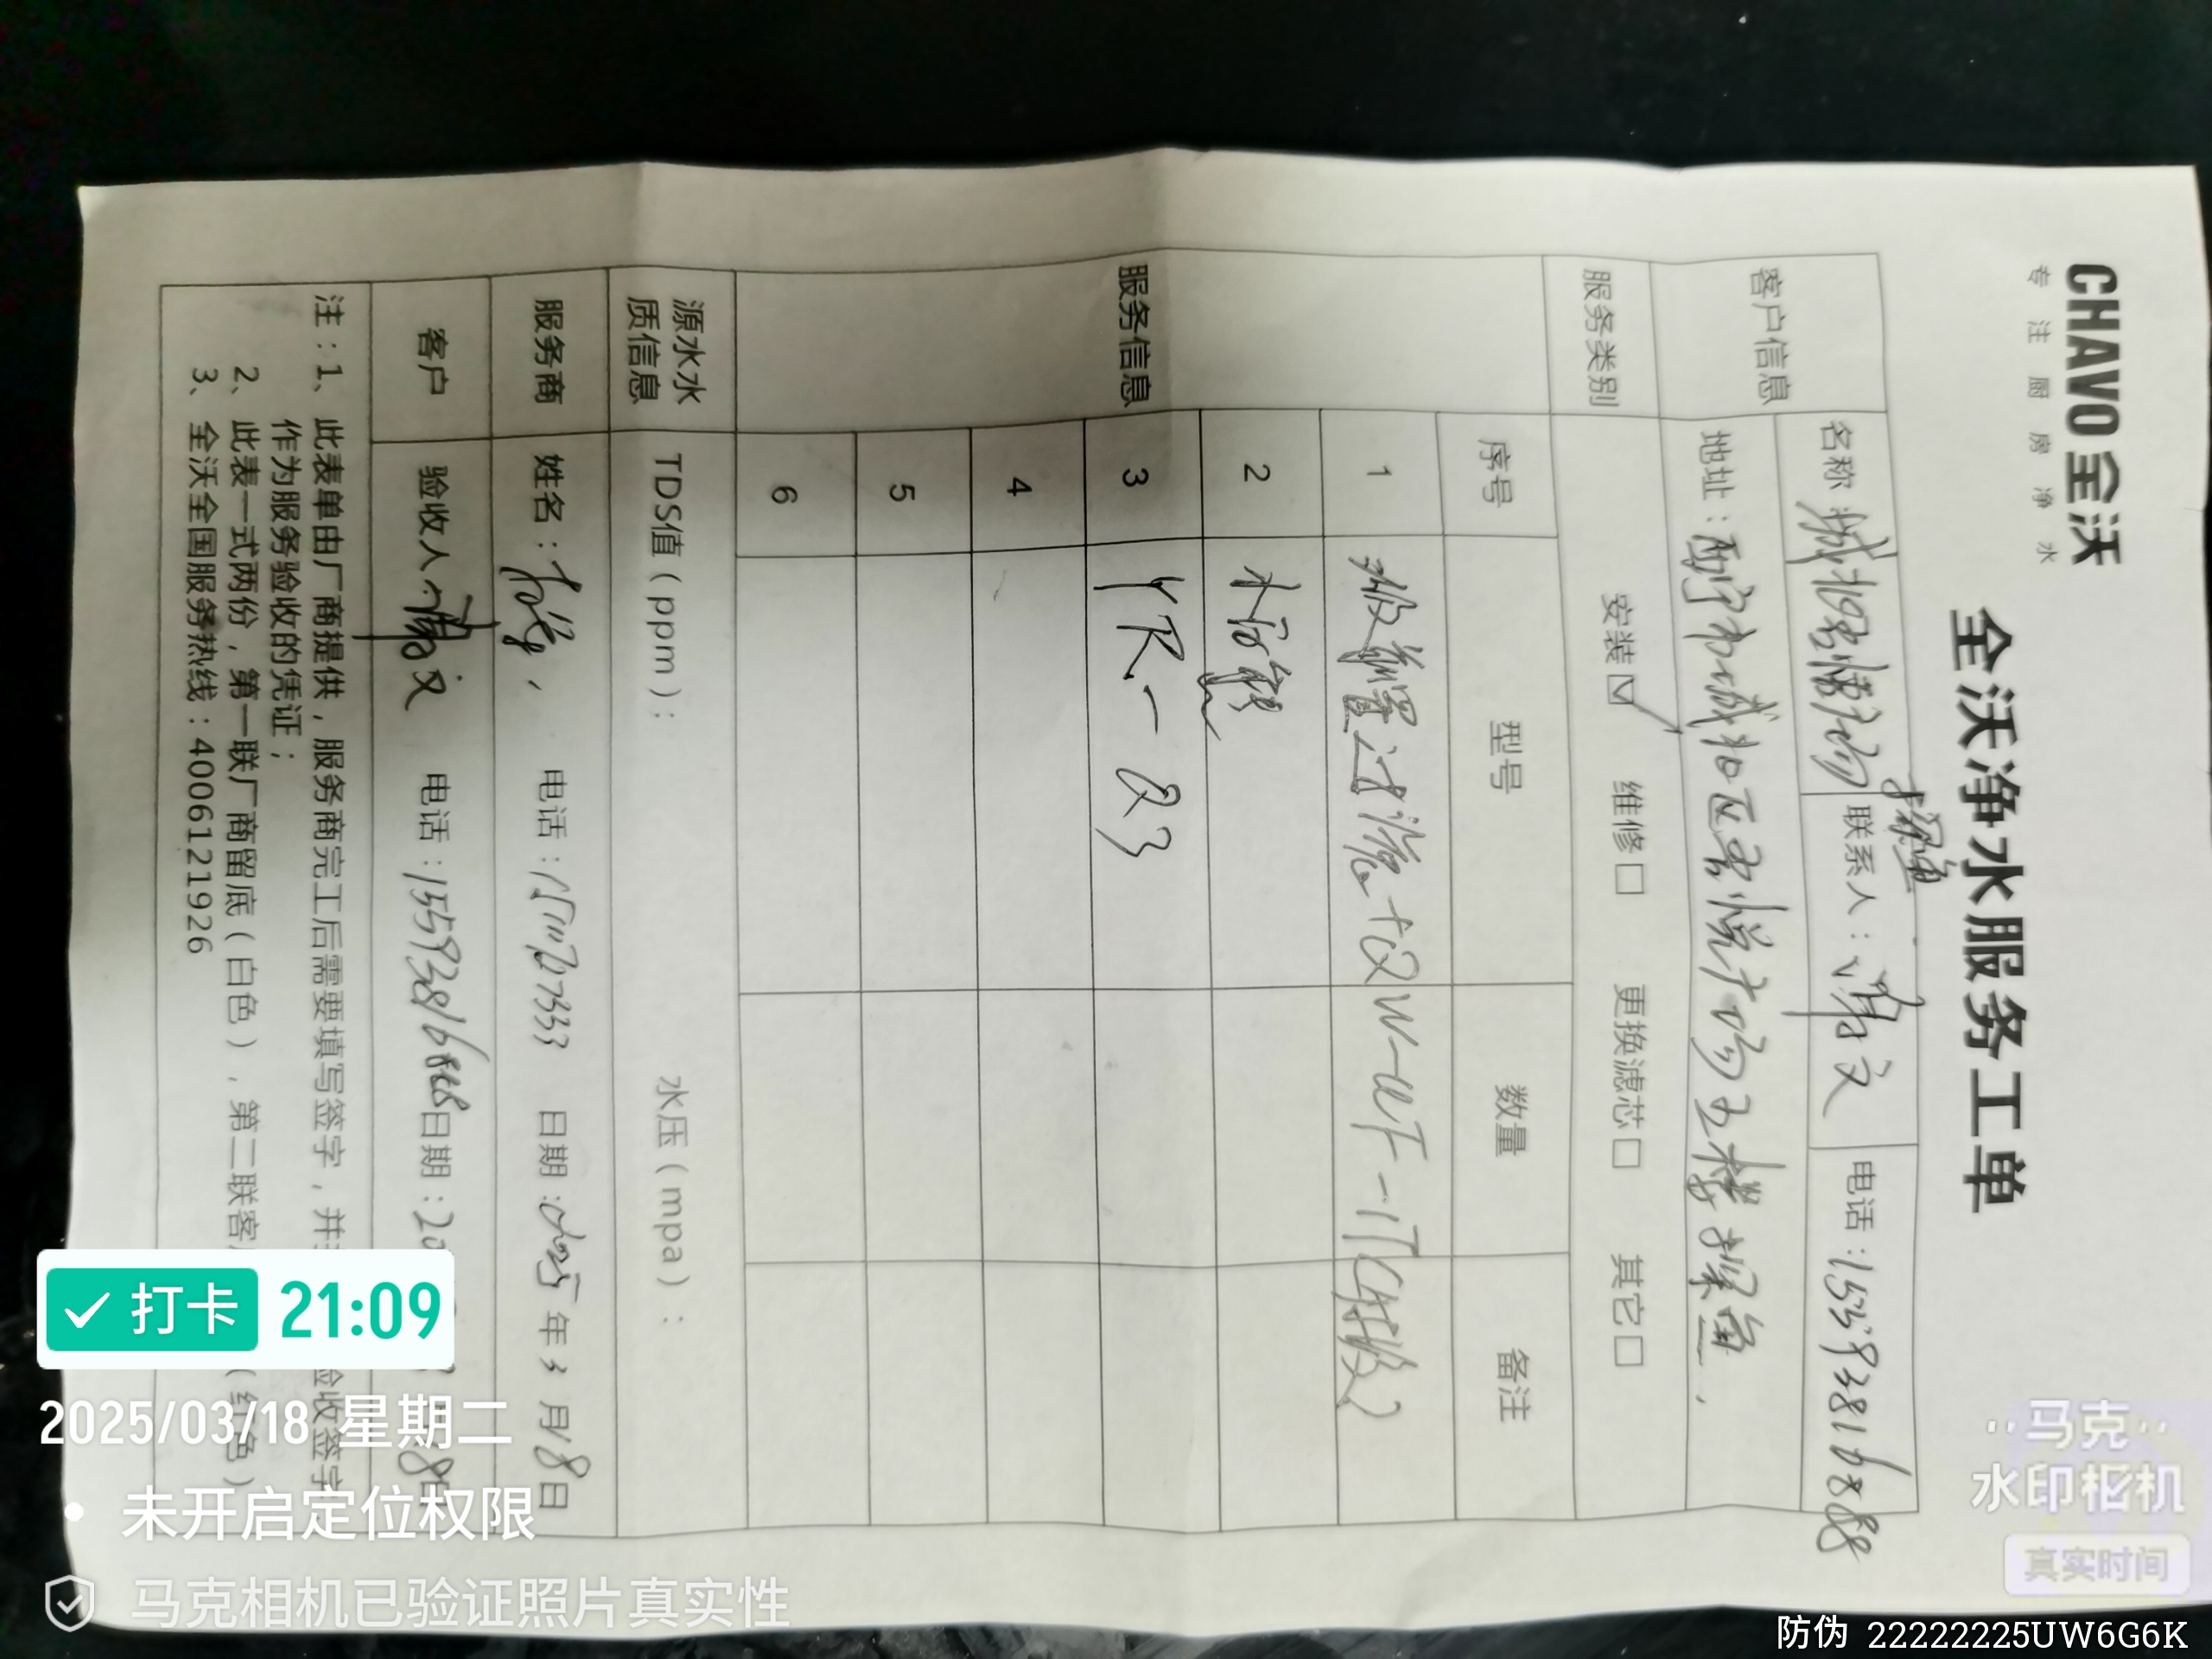 CHAVO 全沃
专注厨房净水
全沃净水服务工单
探鱼
客户信息
名称
联系人：
文
电话：15593816888
地址：西宁市城北区吾悦广场五楼探鱼
服务类别
安装☑ 维修☐ 更换滤芯☐ 其它☐
服务信息
序号 型号 数量 备注
1
2
3 YR-Q3
4
5
6
源水水质信息
TDS值（ppm）：
水压（mpa）：
服务商
姓名：
电话：
日期：2025年3月18日
客户
验收人：
文
电话：15593816888
日期：20
注：1、此表单由厂商提供，服务商完工后需要填写签字，并
验收签字
作为服务验收的凭证；
2、此表一式两份，第一联厂商留底（白色），第二联客
（红色）
3、全沃全国服务热线：4006121926
打卡 21:09
2025/03/18 星期二
未开启定位权限
马克相机已验证照片真实性
马克
水印相机
真实时间
防伪 22222225UW6G6K